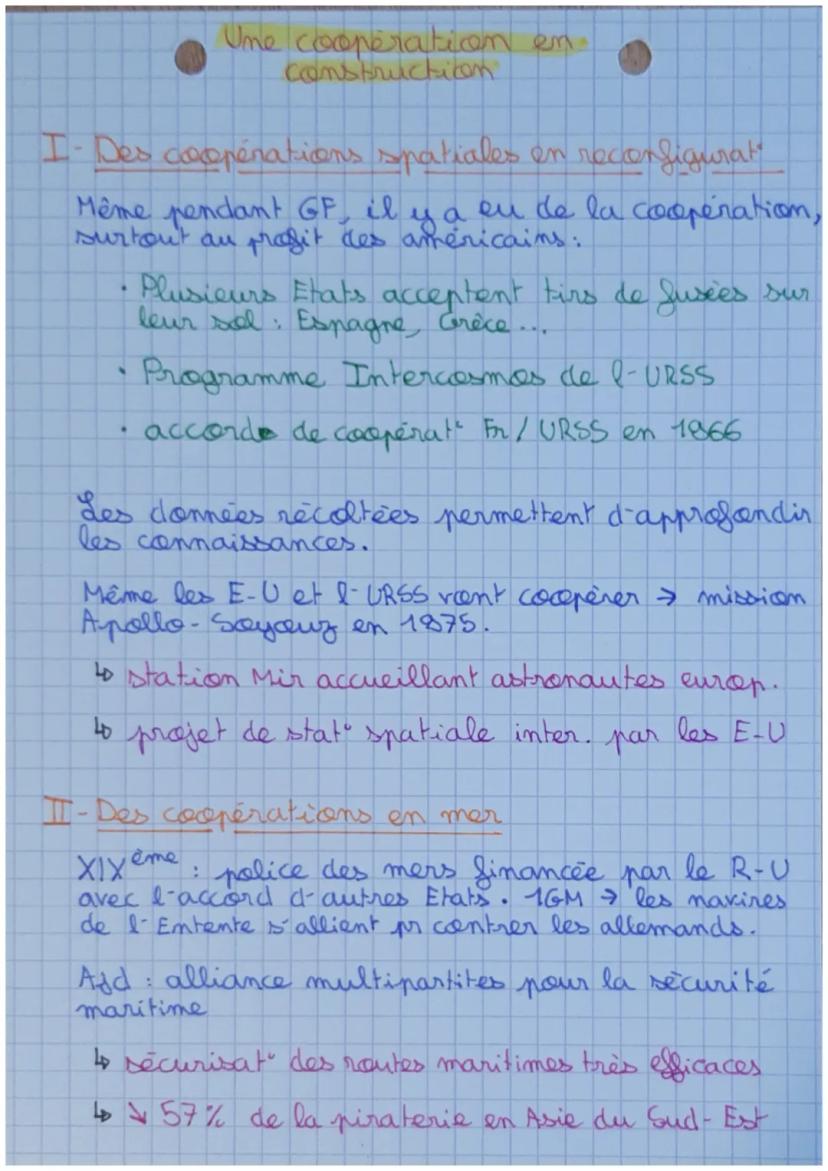 Une coopération en
construction
I - Des coopérations spatiales en reconfigurat°
Même pendant GF, il y a eu de la coopération,
surtout au profit des américains :
· Plusieurs Etats acceptent tirs de fusées sur
leur sol : Espagne, Grèce ...
· Programme Intercosmos de l'URSS
· accords de coopérat° Fr / URSS en 1966
Les données récoltées permettent d'approfondir
les connaissances.
Même les E-U et l'URSS vont coopérer → mission
Apollo-Soyouz en 1975.
↳ station Mir accueillant astronautes europ.
↳ projet de stat° spatiale inter. par les E-U
II - Des coopérations en mer
XIXème : police des mers financée par le R-U
avec l'accord d'autres Etats. 1GM → les navires
de l'Entente s'allient pr contrer les allemands.
Ajd : alliance multipartites pour la sécurité
maritime
↳ sécurisat° des routes maritimes très efficaces
↳ ↘ 57% de la piraterie en Asie du Sud-Est